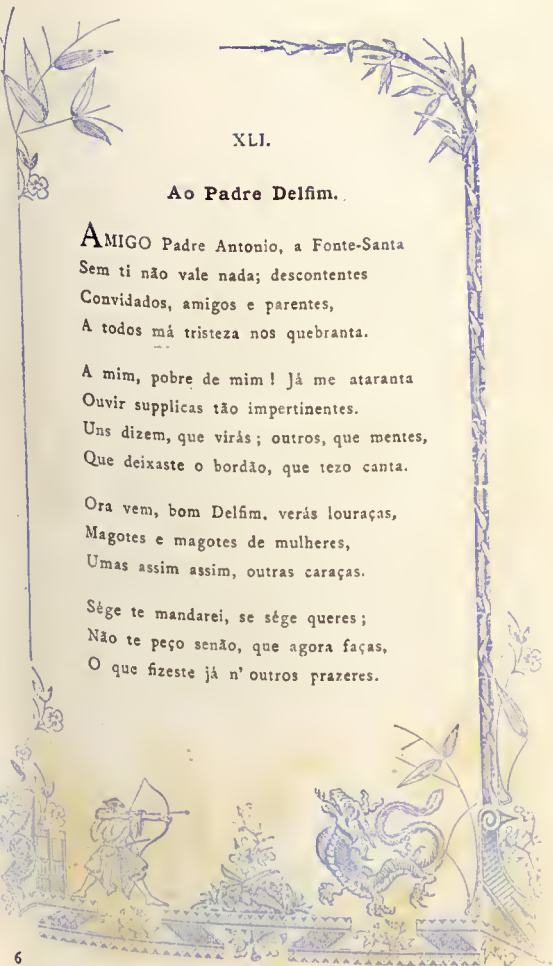 XLI.
Ao Padre Delfim.
AMIGO Padre Antonio, a Fonte-Santa
Sem ti não vale nada; descontentes
Convidados, amigos e parentes,
A todos má tristeza nos quebranta.
A mim, pobre de mim ! Já me ataranta
Ouvir supplicas tão impertinentes.
Uns dizem, que virás ; outros, que mentes,
Que deixaste o bordão, que tezo canta.
Ora vem, bom Delfim. verás louraças,
Magotes e magotes de mulheres,
Umas assim assim, outras caraças.
Sége te mandarei, se sége queres ;
Não te peço senão, que agora faças,
O que fizeste já n' outros prazeres.
6